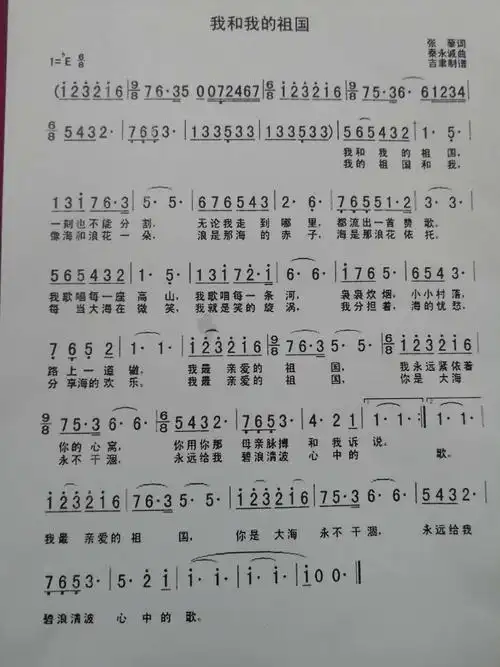 我和我的祖国
张藜词
秦永诚曲
吉聿制谱
1=♭E 6/8
(1̇2̇3̇2̇1̇6 | 9/8 76·35 0072467 | 6/8 1̇2̇3̇2̇1̇6 | 9/8 75·36· 61234
6/8 5432· | 7653· | 133533 | 133533) | 565432 | 1·5·
我和我的祖国,
我的祖国和我,
1̇31̇76·3 | 5·5· | 676543 | 2·6· | 765551·2 | 3·3·
一刻也不能分割, 无论我走到哪里, 都流出一首赞歌。
像海和浪花一朵, 浪是那海的赤子, 海是那浪花依托。
565432 | 1·5· | 1̇31̇72̇·1̇ | 6·6· | 1̇765 | 6543
我歌唱每一座高山, 我歌唱每一条河, 袅袅炊烟, 小小村落,
每当大海在微笑, 我就是笑的旋涡, 我分担着, 海的忧愁,
7652 | 1·1· | 1̇2̇3̇2̇1̇6 | 9/8 75·35· | 6/8 1̇2̇3̇2̇1̇6
路上一道辙, 我最亲爱的祖国, 我永远紧依着
分享海的欢乐。 我最亲爱的祖国, 你是大海
9/8 75·36·6· | 6/8 5432· | 7653· | 4·21 | 1·1· :‖ 1·1·
你的心窝, 你用你那母亲脉搏和我诉说。
永不干涸, 永远给我碧浪清波心中的歌。
1̇2̇3̇2̇1̇6 | 76·35· | 1̇2̇3̇2̇1̇6 | 75·36· | 6· | 5432·
我最亲爱的祖国, 你是大海永不干涸, 永远给我
7653· | 5·2̇1̇ | 1̇·1̇· | 1̇·1̇· | 1̇00‖
碧浪清波心中的歌。